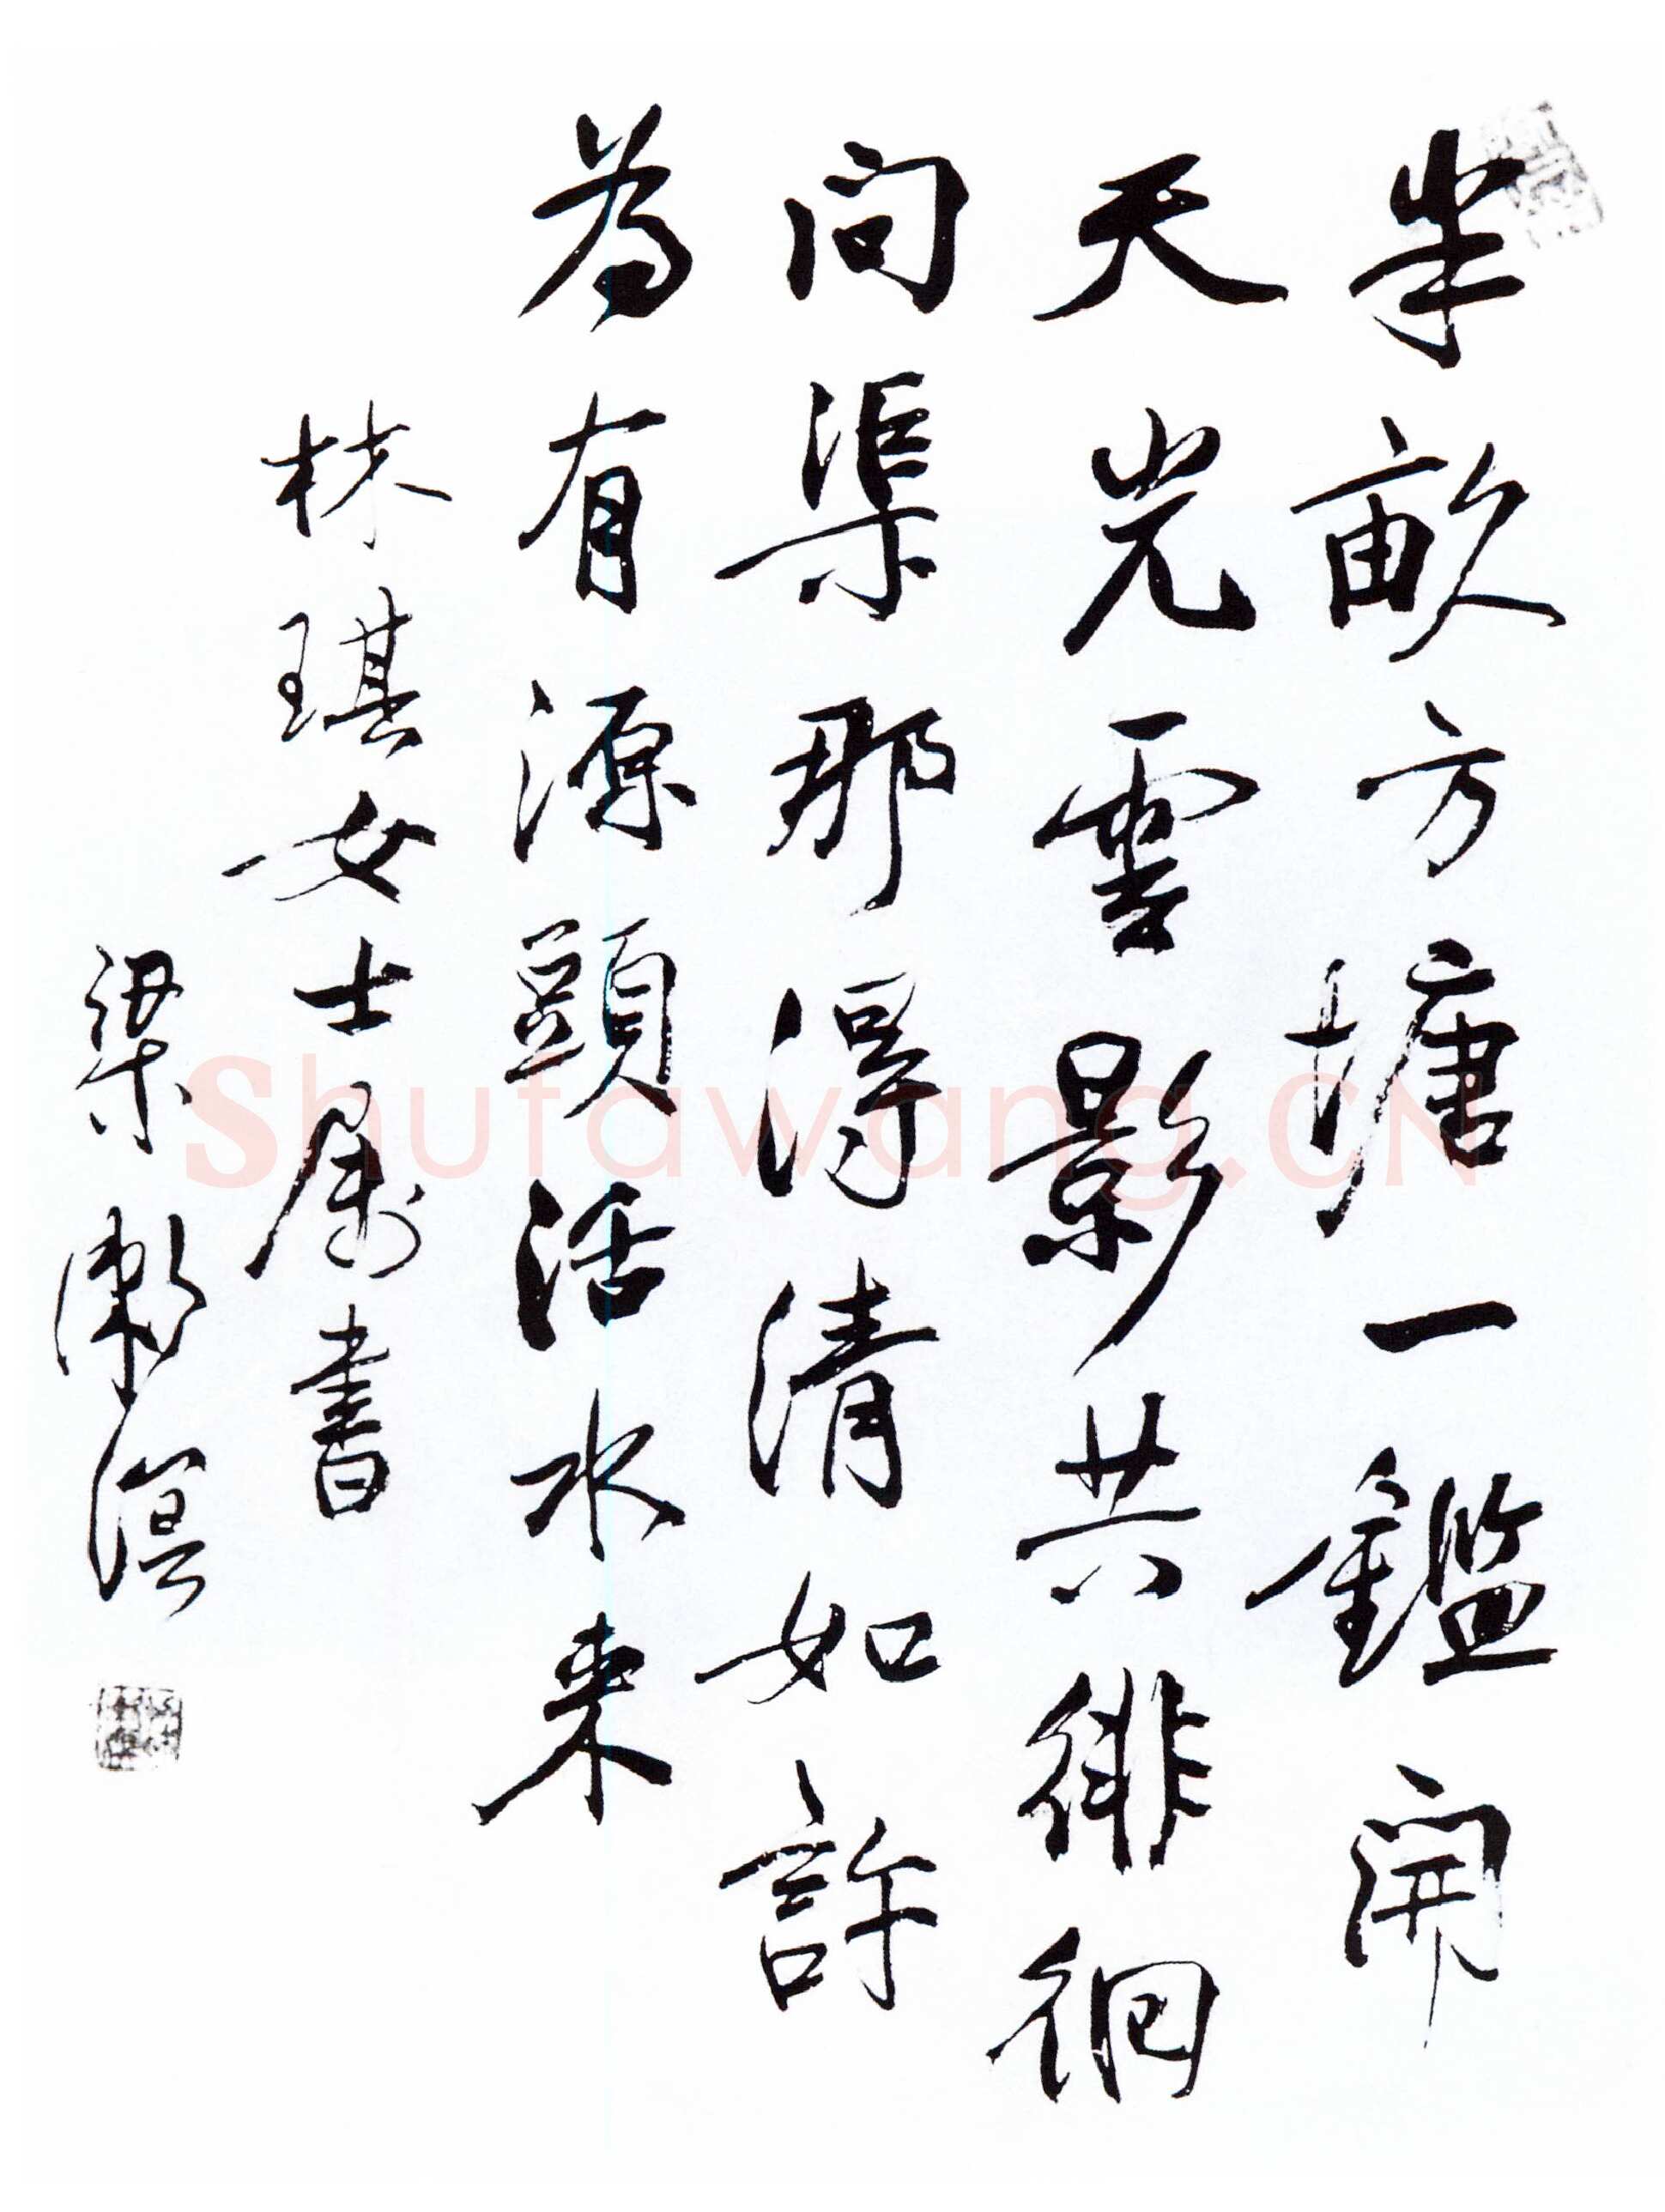 半畝方塘一鑑開
天光雲影共徘徊
问渠那得清如許
为有源頭活水来
林琪女士属書
梁漱溟
Shufawang.CN